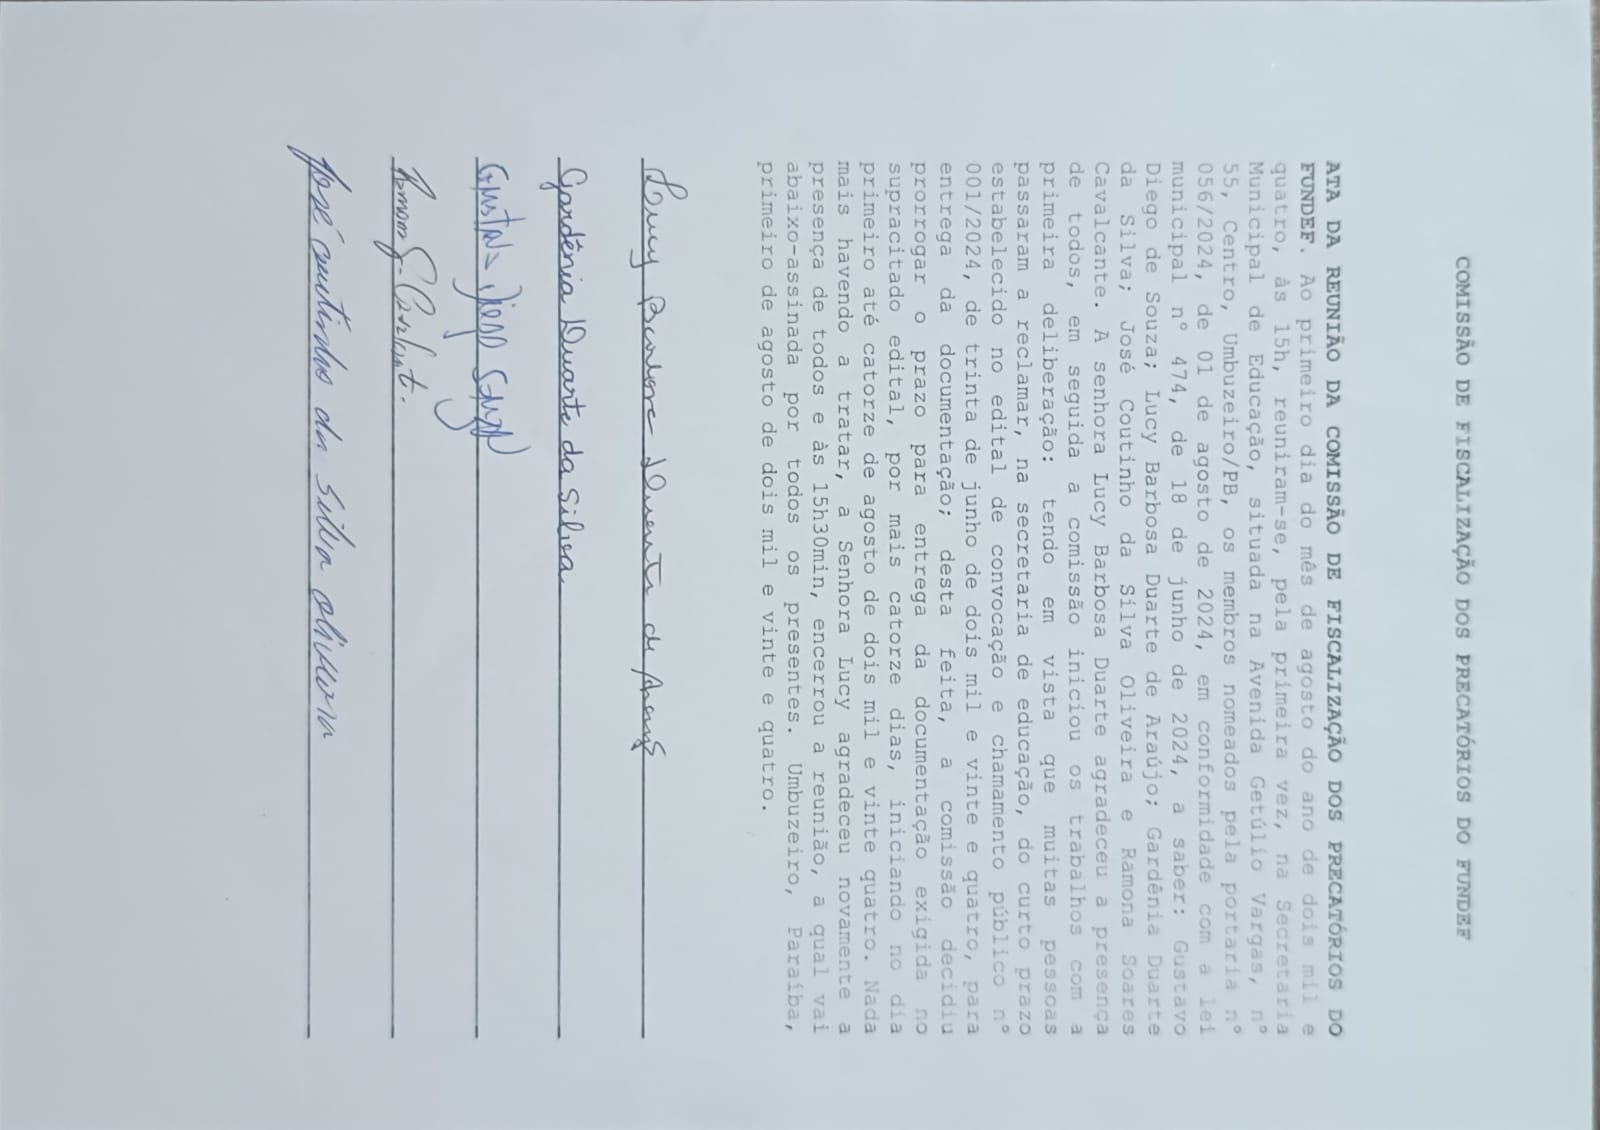 COMISSÃO DE FISCALIZAÇÃO DOS PRECATÓRIOS DO FUNDEF
ATA DA REUNIÃO DA COMISSÃO DE FISCALIZAÇÃO DOS PRECATÓRIOS DO
FUNDEF. Ao primeiro dia do mês de agosto do ano de dois mil e
quatro, às 15h, reuniram-se, pela primeira vez, na Secretaria
Municipal de Educação, situada na Avenida Getúlio Vargas, nº
55, Centro, Umbuzeiro/PB, os membros nomeados pela portaria nº
056/2024, de 01 de agosto de 2024, em conformidade com a lei
municipal nº 474, de 18 de junho de 2024, a saber: Gustavo
Diego de Souza; Lucy Barbosa Duarte de Araújo; Gardênia Duarte
da Silva; José Coutinho da Silva Oliveira e Ramona Soares
Cavalcante. A senhora Lucy Barbosa Duarte agradeceu a presença
de todos, em seguida a comissão iniciou os trabalhos com a
primeira deliberação: tendo em vista que muitas pessoas
passaram a reclamar, na secretaria de educação, do curto prazo
estabelecido no edital de convocação e chamamento público nº
001/2024, de trinta de junho de dois mil e vinte e quatro, para
entrega da documentação; desta feita, a comissão decidiu
prorrogar o prazo para entrega da documentação exigida no
supracitado edital, por mais catorze dias, iniciando no dia
primeiro até catorze de agosto de dois mil e vinte quatro. Nada
mais havendo a tratar, a Senhora Lucy agradeceu novamente a
presença de todos e às 15h30min, encerrou a reunião, a qual vai
abaixo-assinada por todos os presentes. Umbuzeiro, Paraíba,
primeiro de agosto de dois mil e vinte e quatro.
Lucy Barbosa Duarte de Araújo
Gardênia Duarte da Silva
Gustavo Diego Souza
Ramona S. Cavalcante.
José Coutinho da Silva Oliveira